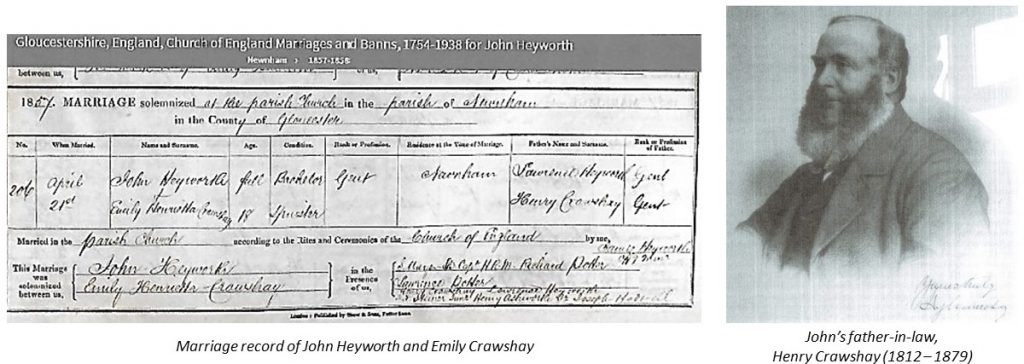 Gloucestershire, England, Church of England Marriages and Banns, 1754-1938 for John Heyworth
Newnham › 1857-1858
between us, of us,
1857. MARRIAGE solemnized at the parish Church in the parish of Newnham
in the County of Gloucester
No. When Married. Name and Surname. Age. Condition. Rank or Profession. Residence at the Time of Marriage. Father's Name and Surname. Rank or Profession of Father.
206 April 21st John Heyworth full Bachelor Gent Newnham Lawrence Heyworth Gent
Emily Henrietta Crawshay 18 Spinster Henry Crawshay Gent
Married in the parish Church according to the Rites and Ceremonies of the Church of England by me, James Heyworth
This Marriage was solemnized between us, John Heyworth
Emily Henrietta Crawshay
in the Presence of us, Richard Potter
Lawrence Potter
Henry Crawshay Lawrence Heyworth
Henry Ashworth Joseph
Marriage record of John Heyworth and Emily Crawshay
John's father-in-law,
Henry Crawshay (1812–1879)